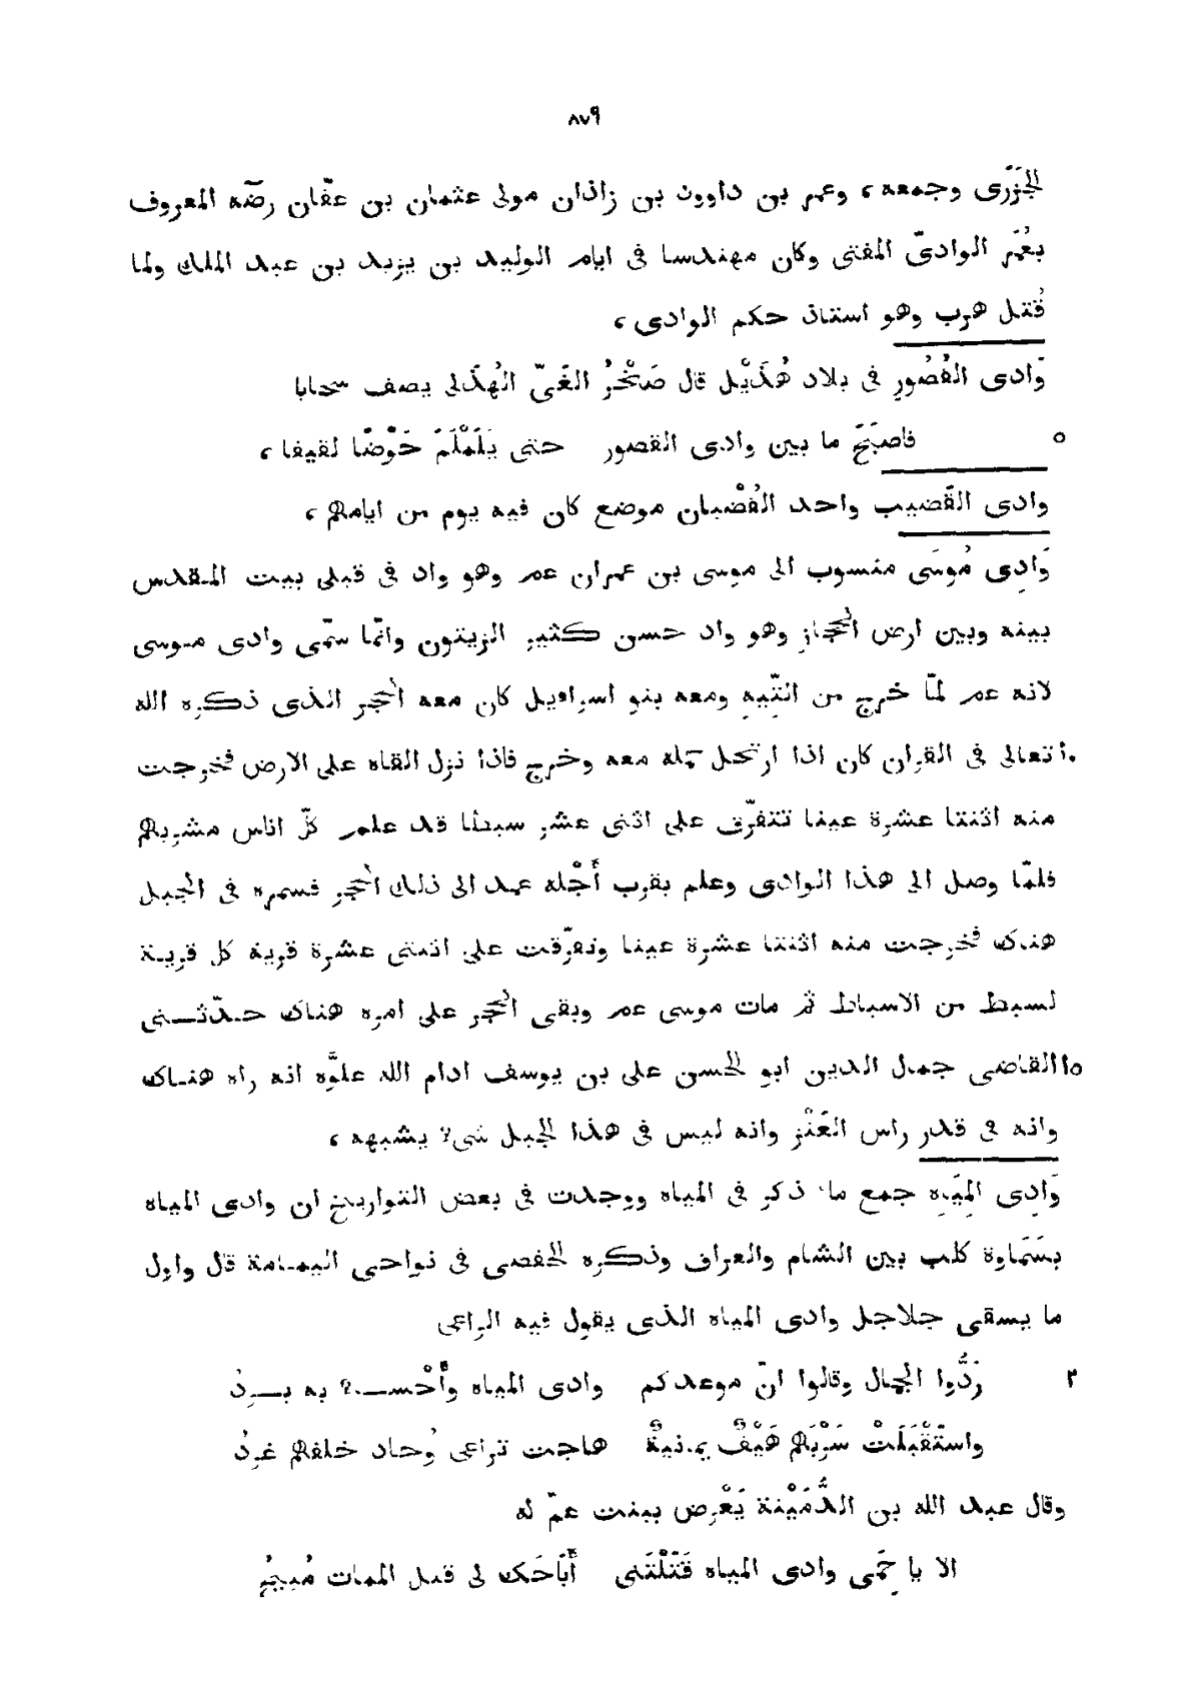 ٨٧٩
الجَزَرى وجمعه، وعمر بن داوود بن زاذان مولى عثمان بن عفّان رضّه المعروف
بعُمَر الوادىّ المفتى وكان مهندسا فى ايام الوليد بن يزيد بن عبد الملك ولما
قُتل هرب وهو استاذ حكم الوادى،
وَادى القُصُورِ فى بلاد هُذَيْل قال صَخْرُ الغَىّ الهُذلى يصف سحابا
٥ فاصبَحَ ما بين وادى القصور حتى يَلَمْلَمَ حَوْضًا لقيفا،
وادى القَضيب واحد القُضْبان موضع كان فيه يوم من ايامهم،
وَادِى مُوسَى منسوب الى موسى بن عمران عم وهو واد فى قبلى بيت المقدس
بينه وبين ارض الحجاز وهو واد حسن كثير الزيتون وانّما سمّى وادى موسى
لانه عم لمّا خرج من التِّيه ومعه بنو اسراءيل كان معه الحَجَر الذى ذكره الله
١٠ تعالى فى القران كان اذا ارتحل حمله معه وخرج فاذا نزل القاه على الارض فخرجت
منه اثنتا عشرة عينا تتفرّق على اثنى عشر سبطا قد علم كلّ اناس مشربهم
فلمّا وصل الى هذا الوادى وعلم بقرب أَجْله عمد الى ذلك الحَجَر فسمره فى الجبل
هناك فخرجت منه اثنتا عشرة عينا وتفرّقت على اثنتى عشرة قرية كل قرية
لسبط من الاسباط ثم مات موسى عم وبقى الحَجَر على امره هناك حدّثنى
١٥ القاضى جمال الدين ابو الحسن على بن يوسف ادام الله علوَّه انه راه هناك
وانه فى قدر راس العَنْز وانه ليس فى هذا الجبل شىء يشبهه،
وَادِى المِيَاه جمع ماء ذكر فى المياه ووجدت فى بعض التواريخ ان وادى المياه
بسَمَاوة كلب بين الشام والعراق وذكره الحفصى فى نواحى اليمامة قال واول
ما يسقى جلاجل وادى المياه الذى يقول فيه الراعى
٢ رَدُّوا الجمال وقالوا انّ موعدكم وادى المياه وأَحْساء به بردُ
واستَقْبَلَتْ سَرْبَهم هَيْفٌ يمانيةٌ هاجت تراعى وُحاد خلفهم غردُ
وقال عبد الله بن الدُّمَيْنة يَعْرِض ببنت عمّ له
الا يا حِمَى وادى المياه قَتَلْتَنى أَبَاحَك لى قبل الممات مُبيحُ